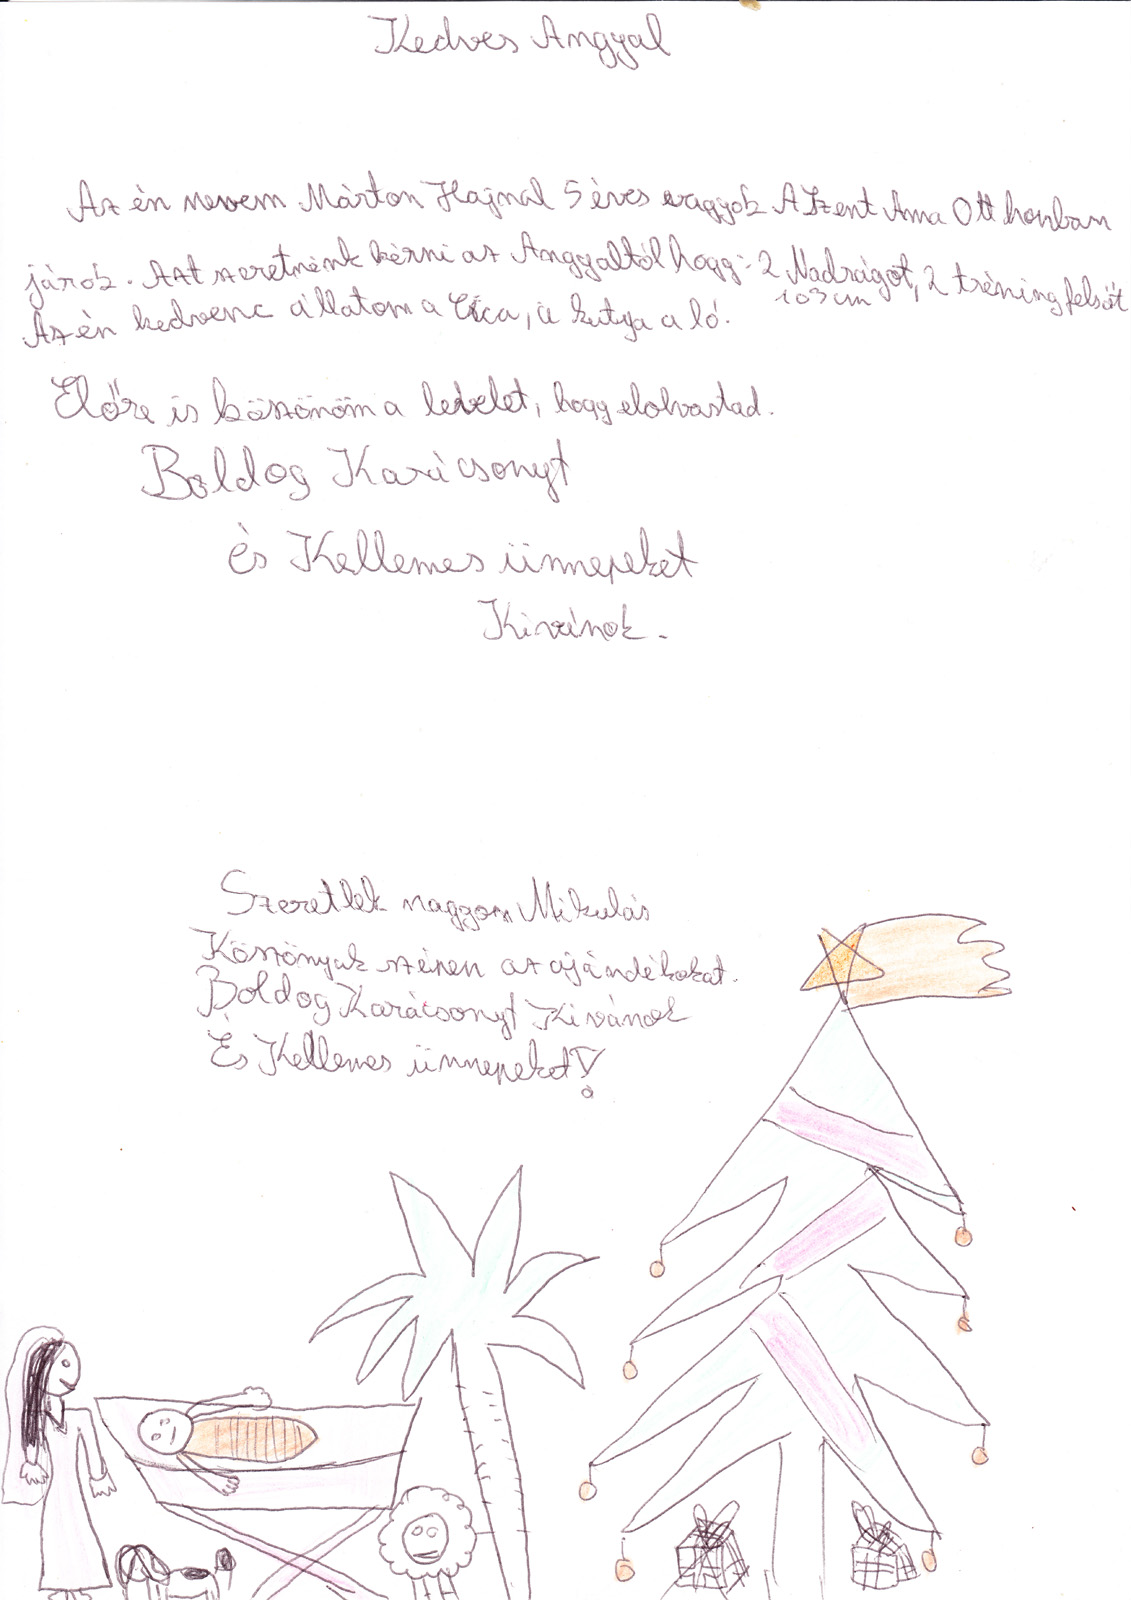 Kedves Anggyal
Az èn nevem Màrton Hajnal 5 èves vagyok A Szent Anna Ott honban
járok. Azt szeretnènk kèrni az Anggyaltól hogg: 2 Nadràgot, 2 trèning felsöt
103 cm
Az èn kedvenc állatom a Cica, a kutya a ló.
Előre is köszönöm a levelet, hogg elolvastad.
Boldog Karácsonyt
ès Kellemes ünnepeket
Kivánok.
Szeretlek naggyon Mikulás
Köszönyuk szèpen az ajándèkokat.
Boldog Karácsonyt Kivánok
Es Kellemes ünnepeket!